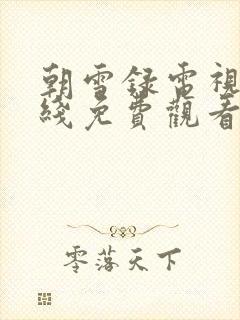 朝雪錄電視
綫免費觀看
零落天下